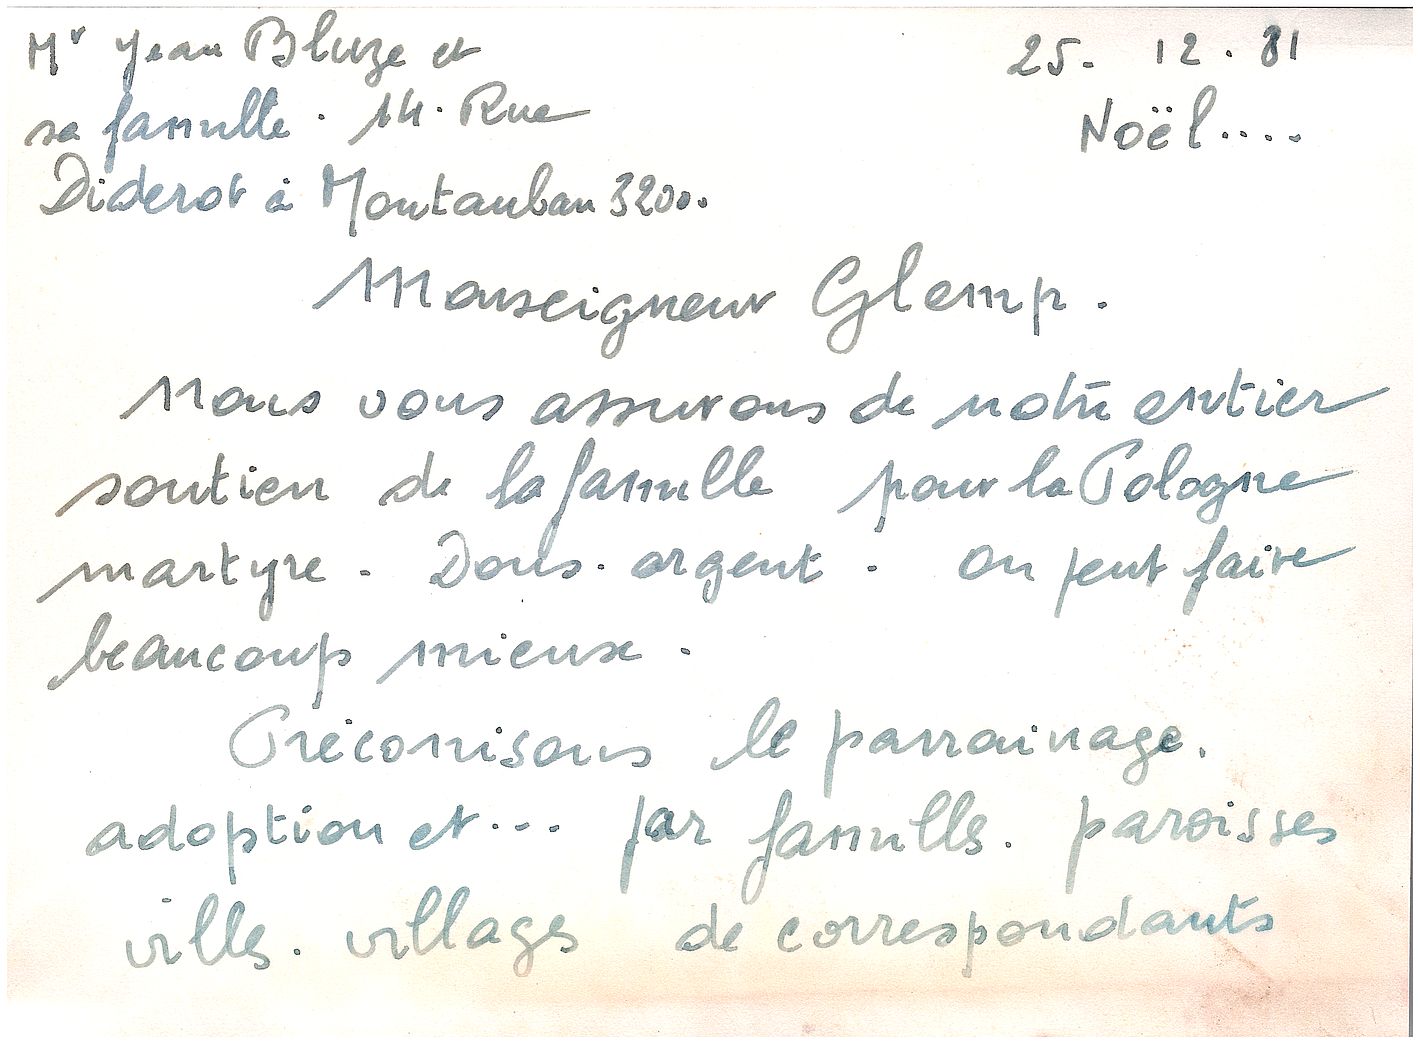 Mr Jean Bluze et
25. 12. 81
sa famille. 14. Rue
Noël....
Diderot à Montauban 82000
Monseigneur Glemp.
Nous vous assurons de notre entier
soutien de la famille pour la Pologne
martyre. Dons. argent. On peut faire
beaucoup mieux.
Préconisons le parrainage.
adoption et... par familles. paroisses
villes. villages de correspondants